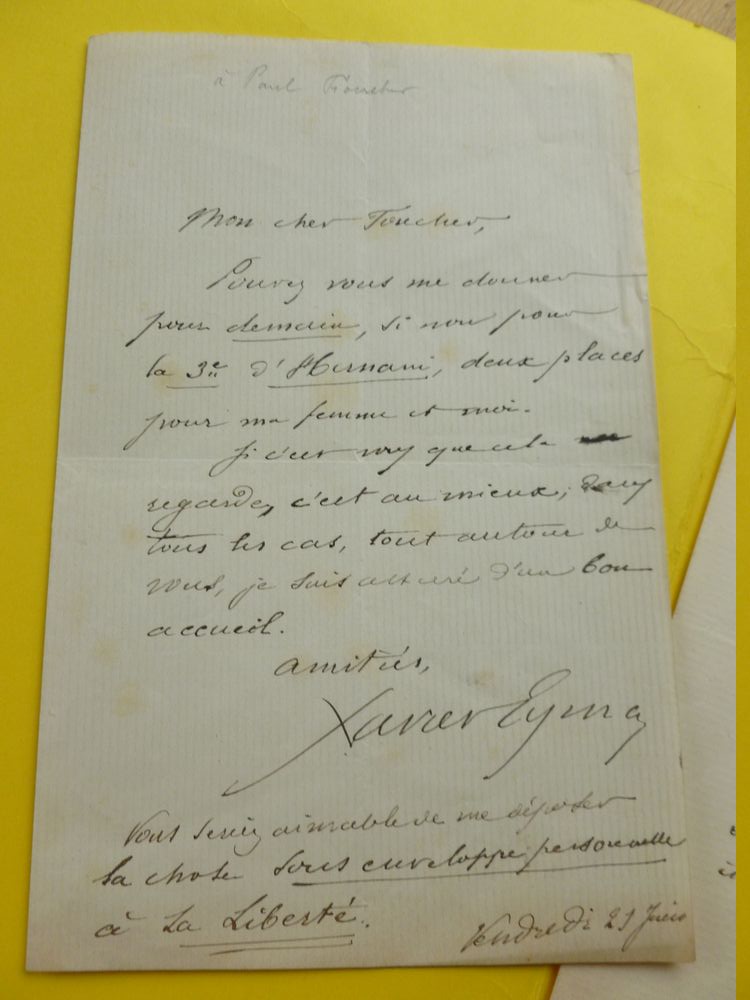 à Paul Foucher
Mon cher Foucher,
Pouvez vous me donner
pour demain, si non pour
la 3e d'Hernani, deux places
pour ma femme et moi.
Si c'est vous que cela
regarde, c'est au mieux; dans
tous les cas, tout autour de
vous, je suis assuré d'un bon
accueil.
amitiés,
Xavier Eyma
Vous seriez aimable de me déposer
la chose sous enveloppe personnelle
à La Liberté.
Vendredi 21 Juin